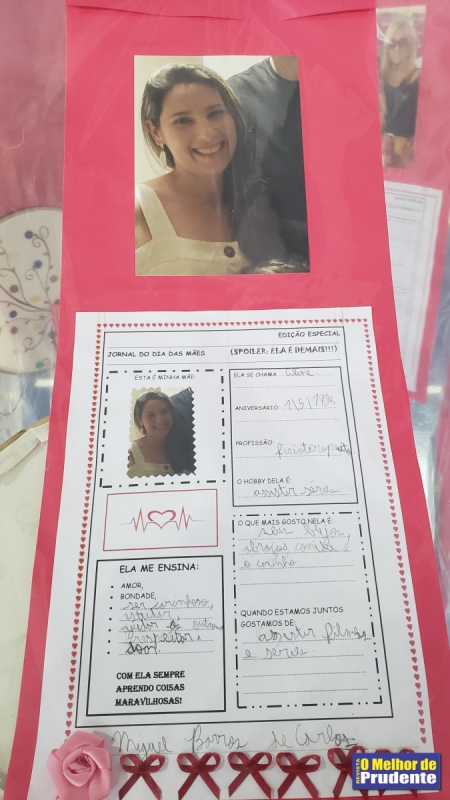 EDIÇÃO ESPECIAL
JORNAL DO DIA DAS MÃES
(SPOILER: ELA É DEMAIS!!!!)
ESTA É MINHA MÃE
ELA SE CHAMA
ANIVERSÁRIO:
PROFISSÃO:
fisioterapeuta
O HOBBY DELA É:
assistir séries
O QUE MAIS GOSTO NELA É:
seus
abraços
e
o carinho
ELA ME ENSINA:
• AMOR,
• BONDADE,
• ser carinhoso,
• estudar
• ajudar os outros
• respeitar
COM ELA SEMPRE
APRENDO COISAS
MARAVILHOSAS!
QUANDO ESTAMOS JUNTOS
GOSTAMOS DE:
assistir filmes
e séries
Miguel Barros de Carlos
REVISTA
O Melhor de
Prudente